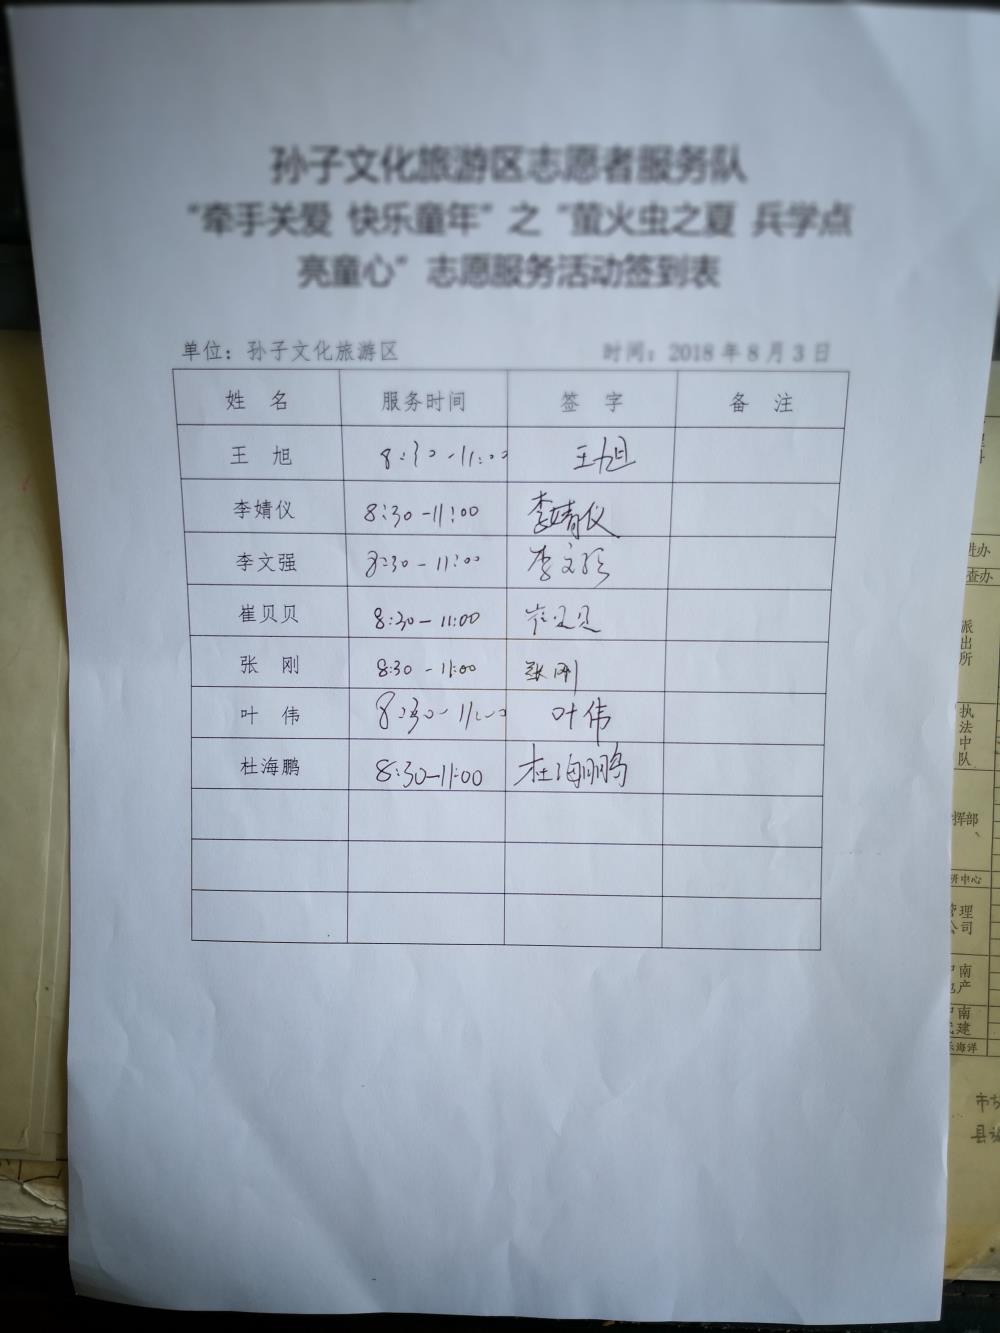 孙子文化旅游区志愿者服务队
“牵手关爱 快乐童年”之“萤火虫之夏 兵学点
亮童心”志愿服务活动签到表
单位：孙子文化旅游区 时间：2018年8月3日
姓 名 服务时间 签 字 备 注
王 旭 8:30-11:00 王旭
李婧仪 8:30-11:00 李婧仪
李文强 8:30-11:00 李文强
崔贝贝 8:30-11:00 崔贝贝
张 刚 8:30-11:00 张刚
叶 伟 8:30-11:00 叶伟
杜海鹏 8:30-11:00 杜海鹏
进办
查办
派
出
所
执
法
中
队
挥部
研中心
管理
公司
中南
地产
中南
民建
乐海洋